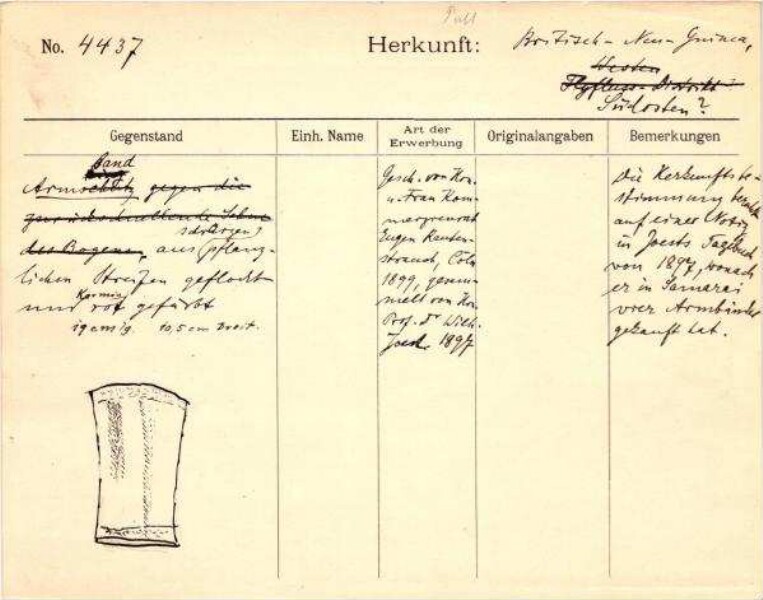 No. 4437
Herkunft:
Britisch-Neu-Guinea,
Westen
Flyfluss-Distrikt?
Südosten?
Gegenstand
Einh. Name
Art der
Erwerbung
Originalangaben
Bemerkungen
band
Armschutz gegen die
zurückschnellende Sehne
des Bogens, aus pflanz-
lichen Streifen geflochten
Karmin
und rot gefärbt
19 cm lg. 10,5 cm breit.
Gesch. von Hrn.
u. Frau Kom-
merzienrat
Eugen Rauten-
strauch, Cöln
1899, gesam-
melt von Hrn.
Prof. Dr Wilh.
Joest. 1897
Die Herkunftsbe-
stimmung beruht
auf einer Notiz
in Joests Tagebuch
von 1897, wonach
er in Samarai
vier Armbänder
gekauft hat.